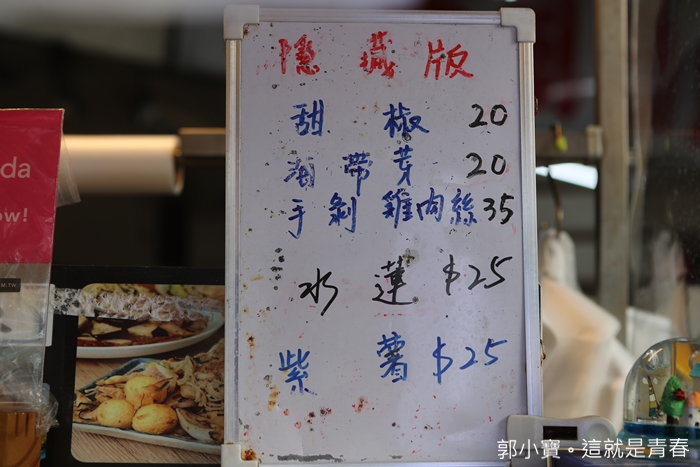 隱藏版
甜椒 20
海帶芽 20
手剝雞肉絲 35
水蓮 $25
紫薯 $25
da
ow!
M.TW
郭小寶。這就是青春